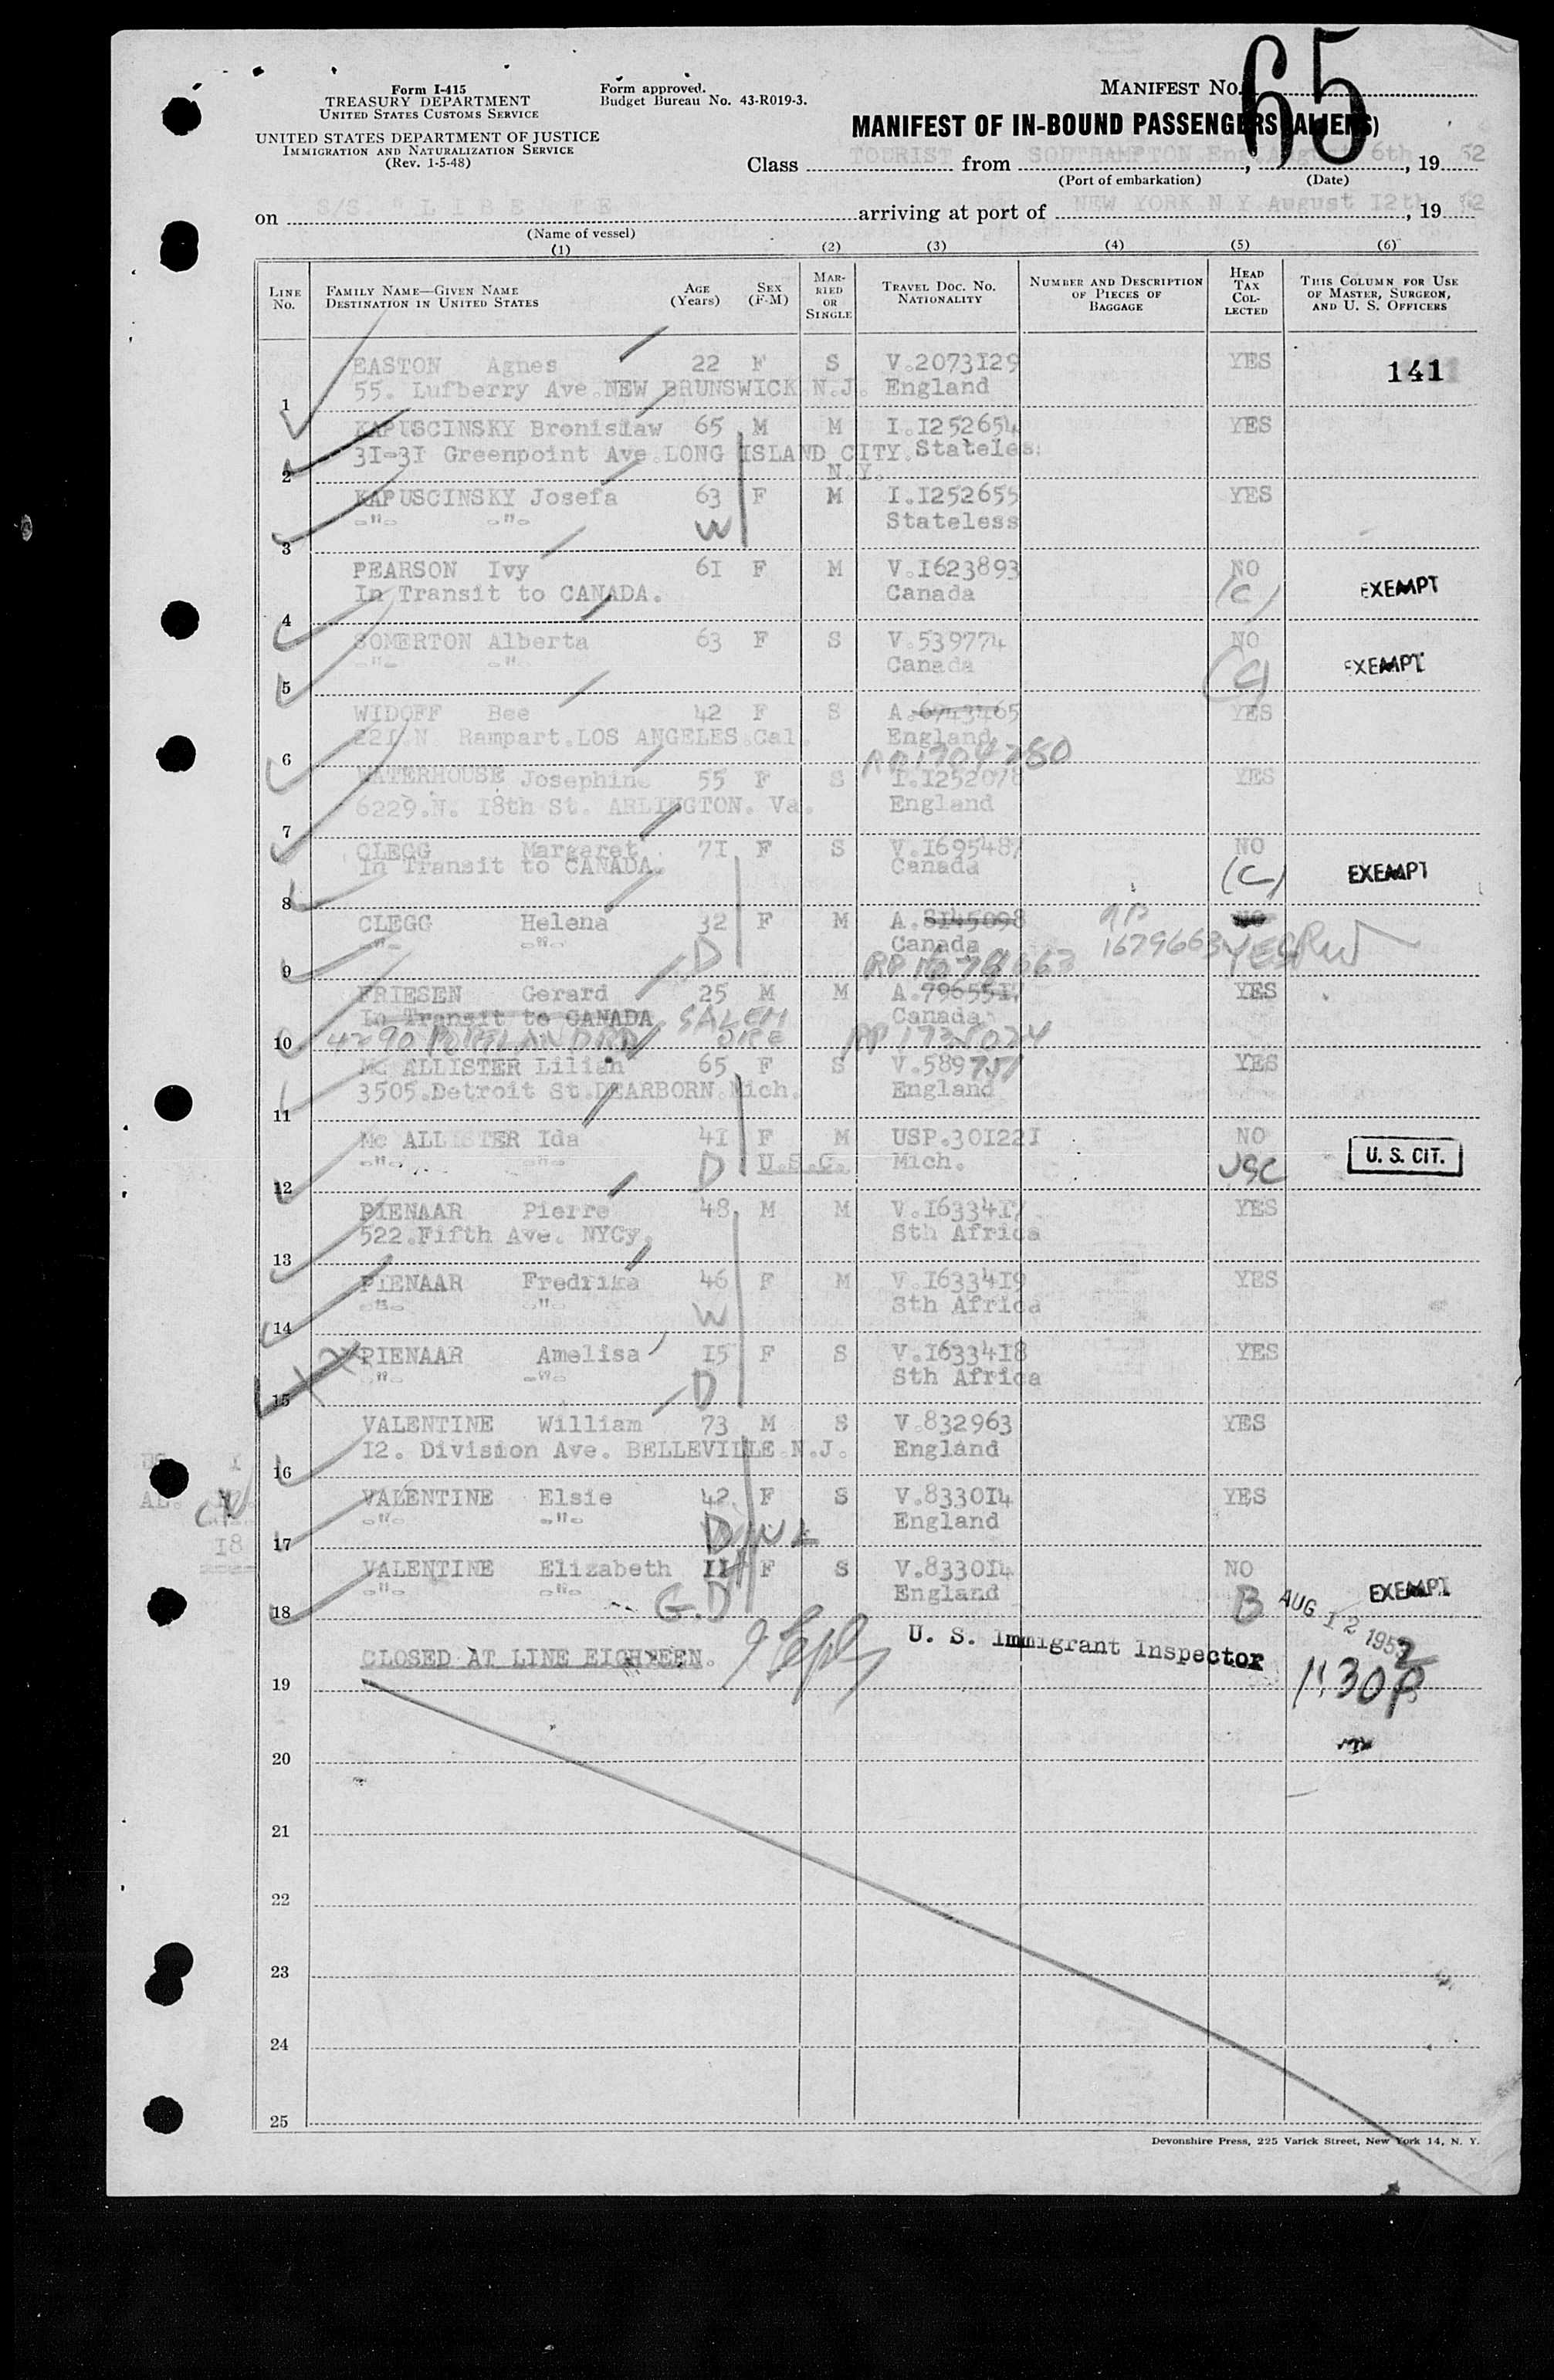 Form I-415
TREASURY DEPARTMENT
UNITED STATES CUSTOMS SERVICE
UNITED STATES DEPARTMENT OF JUSTICE
IMMIGRATION AND NATURALIZATION SERVICE
(Rev. 1-5-48)
Form approved.
Budget Bureau No. 43-R019-3.
MANIFEST NO. 65
MANIFEST OF IN-BOUND PASSENGERS (ALIENS)
Class TOURIST from SOUTHAMPTON Eng. August 6th, 19 52
(Port of embarkation) (Date)
on S/S. "LIBERTE arriving at port of NEW YORK N Y August 12th, 19 52
(Name of vessel)
(1) (2) (3) (4) (5) (6)
LINE NO. FAMILY NAME—GIVEN NAME DESTINATION IN UNITED STATES AGE (Years) SEX (F-M) MARRIED OR SINGLE TRAVEL DOC. NO. NATIONALITY NUMBER AND DESCRIPTION OF PIECES OF BAGGAGE HEAD TAX COLLECTED THIS COLUMN FOR USE OF MASTER, SURGEON, AND U. S. OFFICERS
EASTON Agnes 22 F S V.2073129 YES 141
1 55. Lufberry Ave.NEW BRUNSWICK N.J. England
KAPUSCINSKY Bronislaw 65 M M I.1252654 YES
2 31-31 Greenpoint Ave.LONG ISLAND CITY. Stateless
N.Y.
KAPUSCINSKY Josefa 63 F M I.1252655 YES
3 -"- -"- W Stateless
PEARSON Ivy 61 F M V.1623893 NO
4 In Transit to CANADA. Canada (C) EXEMPT
SOMERTON Alberta 63 F S V.539774 NO
5 -"- -"- Canada (C) EXEMPT
WIDOFF Bee 42 F S A.6743465 YES
6 221.N. Rampart.LOS ANGELES.Cal. England
1704780
WATERHOUSE Josephine 55 F S I.1252078 YES
7 6229.N. 18th St. ARLINGTON. Va. England
CLEGG Margaret 71 F S V.1695487 NO
8 In Transit to CANADA. Canada (C) EXEMPT
CLEGG Helena 32 F M A.8145098 RP NO
9 -"- -"- D Canada 1679663 YES
FRIESEN Gerard 25 M M A.7965517 YES
In Transit to CANADA SALEM Canada
10 4290 PORTLAND RD ORE RP 1738024
Mc ALLISTER Lilian 65 F S V.589751 YES
11 3505.Detroit St.DEARBORN.Mich. England
Mc ALLISTER Ida 41 F M USP.301221 NO
12 -"- -"- D U.S.C. Mich. USC U. S. CIT.
PIENAAR Pierre 48 M M V.1633417 YES
13 522.Fifth Ave. NYCy. Sth Africa
PIENAAR Fredrika 46 F M V.1633419 YES
14 -"- -"- W Sth Africa
PIENAAR Amelisa 15 F S V.1633418 YES
15 -"- -"- D Sth Africa
VALENTINE William 73 M S V.832963 YES
16 12. Division Ave. BELLEVILLE.N.J. England
VALENTINE Elsie 42 F S V.833014 YES
17 -"- -"- D England
18
VALENTINE Elizabeth 11 F S V.833014 NO
18 -"- -"- G.D England B EXEMPT
AUG 12 1952
CLOSED AT LINE EIGHTEEN. U. S. Immigrant Inspector
19 1:30 P
20
21
22
23
24
25
Devonshire Press, 225 Varick Street, New York 14, N. Y.